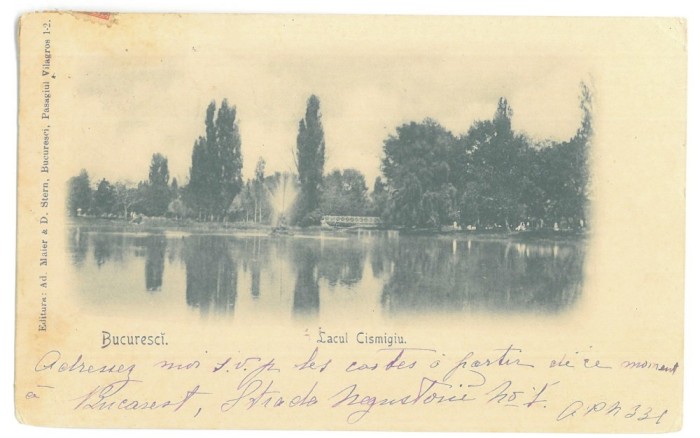 Editura: Ad. Maier & D. Stern, Bucuresci, Pasagiul Vilagros 1-2.
Bucurescĭ.
Lacul Cismigiu.
Adressez moi s.v.p les cartes à partir de ce moment
à Bucarest, Strada Negustorii No